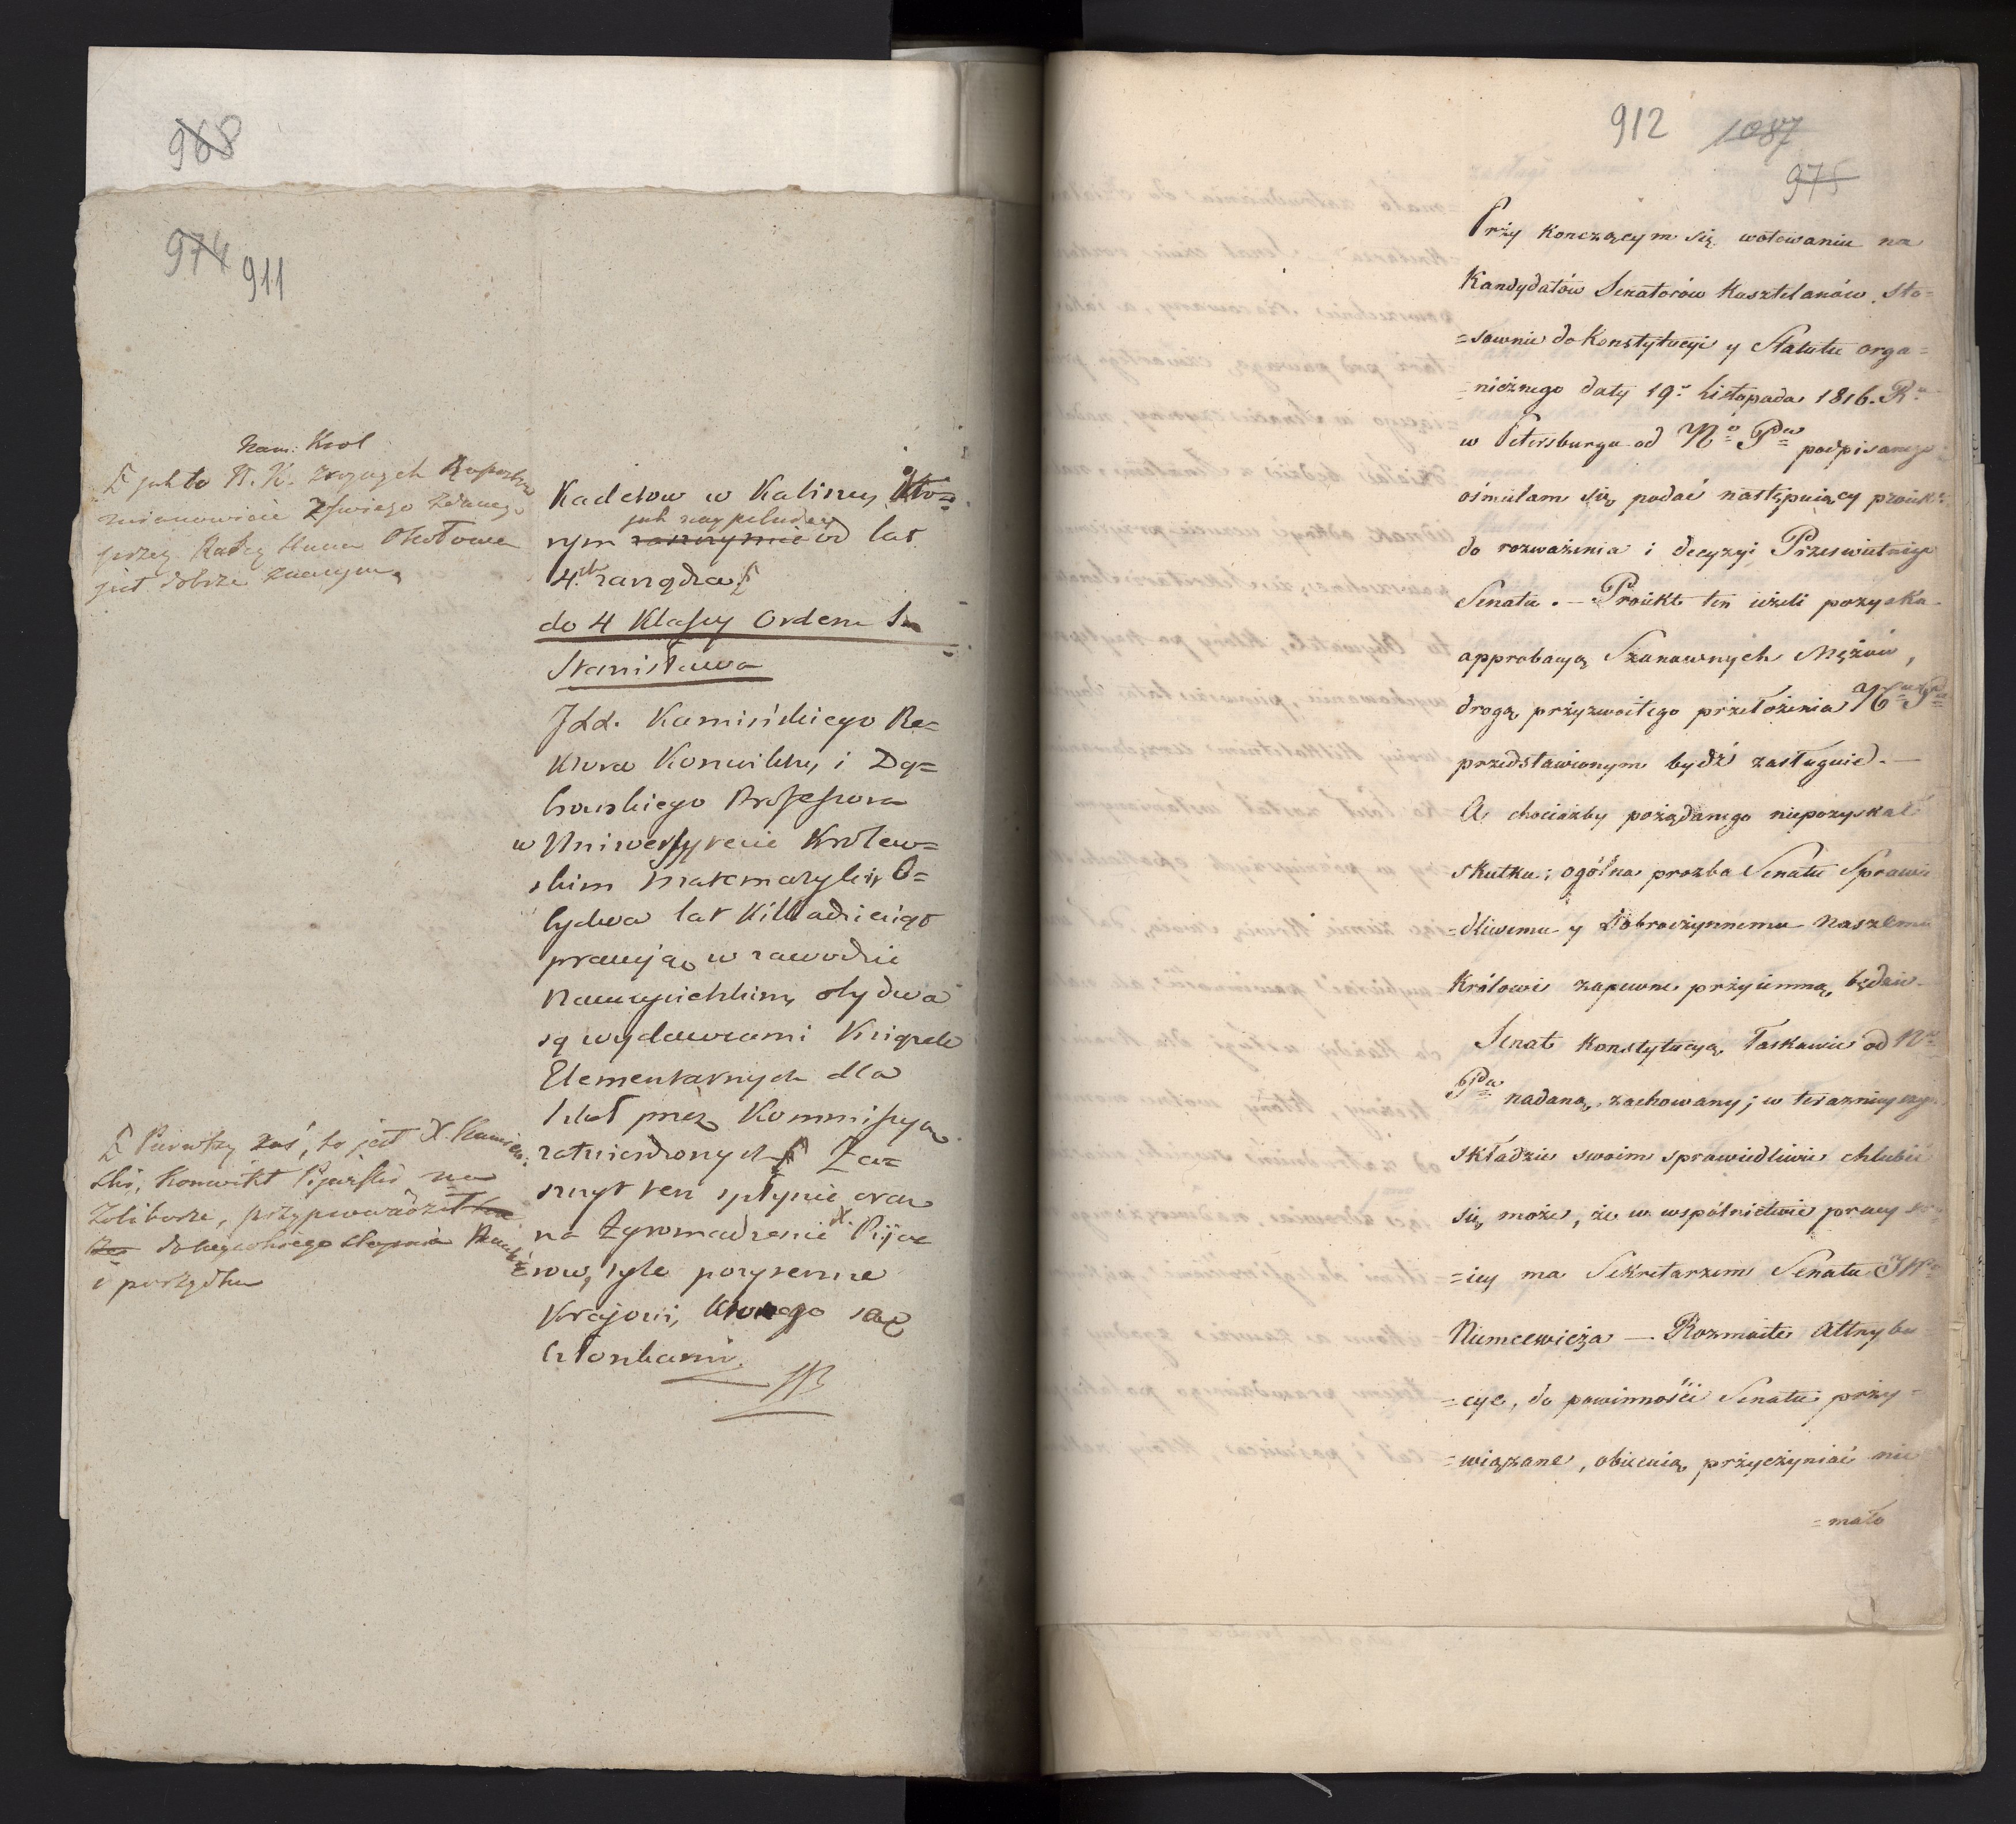 968
974 911
Nam: Król
jak to N. K. z
mianowicie
przez Radcę Stanu
jest dobrze znanym
Kadetow w Kaliszu, Któ=
jak nay
rym zaszczytnie od lat
4.ch zarządza
do 4 Klassy Orderu S.
Stanisława
Jdd. Kamińskiego Re=
ktora Konwiktu, i Dą=
browskiego Professora
w Uniwersytecie Królew=
skim Matematyki, O=
bydwa lat Killkadziesiąt
pracując w zawodzie
Nauczycielskim, obydwa
są wydawcami Książek
Elementarnych dla
Szkół przez Kommissyą
zatwierdzonych Za=
szczyt ten spłynie oraz
na Zgromadzenie X. Pija=
rów, tyle pożyteczne
Krajowi, Którego są
Członkami.
Pierwszy zaś, to jest X. Kamień:
ski, Konwikt Pijarski na
Żoliborze, przyprowadził
do wysokiego stopnia Nauk
i porządku
912 1087
975
Przy konczącym się wotowaniu na
Kandydatów Senatorów Kasztelanów, sto=
=sownie do Konstytucyi y Statutu orga=
=nicżnego daty 19.o Listopada 1816. R.
w Petersburgu od No Pda podpisanego
ośmielam się podać następuiący proiekt
do rozważenia i decyzyi Prześwietnego
Senatu. — Proiekt ten ieżeli pozyska
approbacyą Szanownych Mężów,
drogą przyzwoitego przełożenia
przedstawionym bydź zasługuie. —
A chociażby pożądanego niepozyskał
skutku; ogólna prozba Senatu Sprawie
=dliwemu y Dobroczynnemu Naszemu
Królowi zapewne przyiemną będzie.
Senat Konstytucyą łaskawie od N.
Pda nadaną, zachowany; w teraznieyszym
składzie swoim sprawiedliwie chlubić
się może, że w wspólnictwie pracy
=iey ma Sekretarzem Senatu JW.
Niemcewicża — Rozmaite Attrybu
=cye, do powinności Senatu przy=
=wiązane, obiecuią przyczyniać nie
=mało